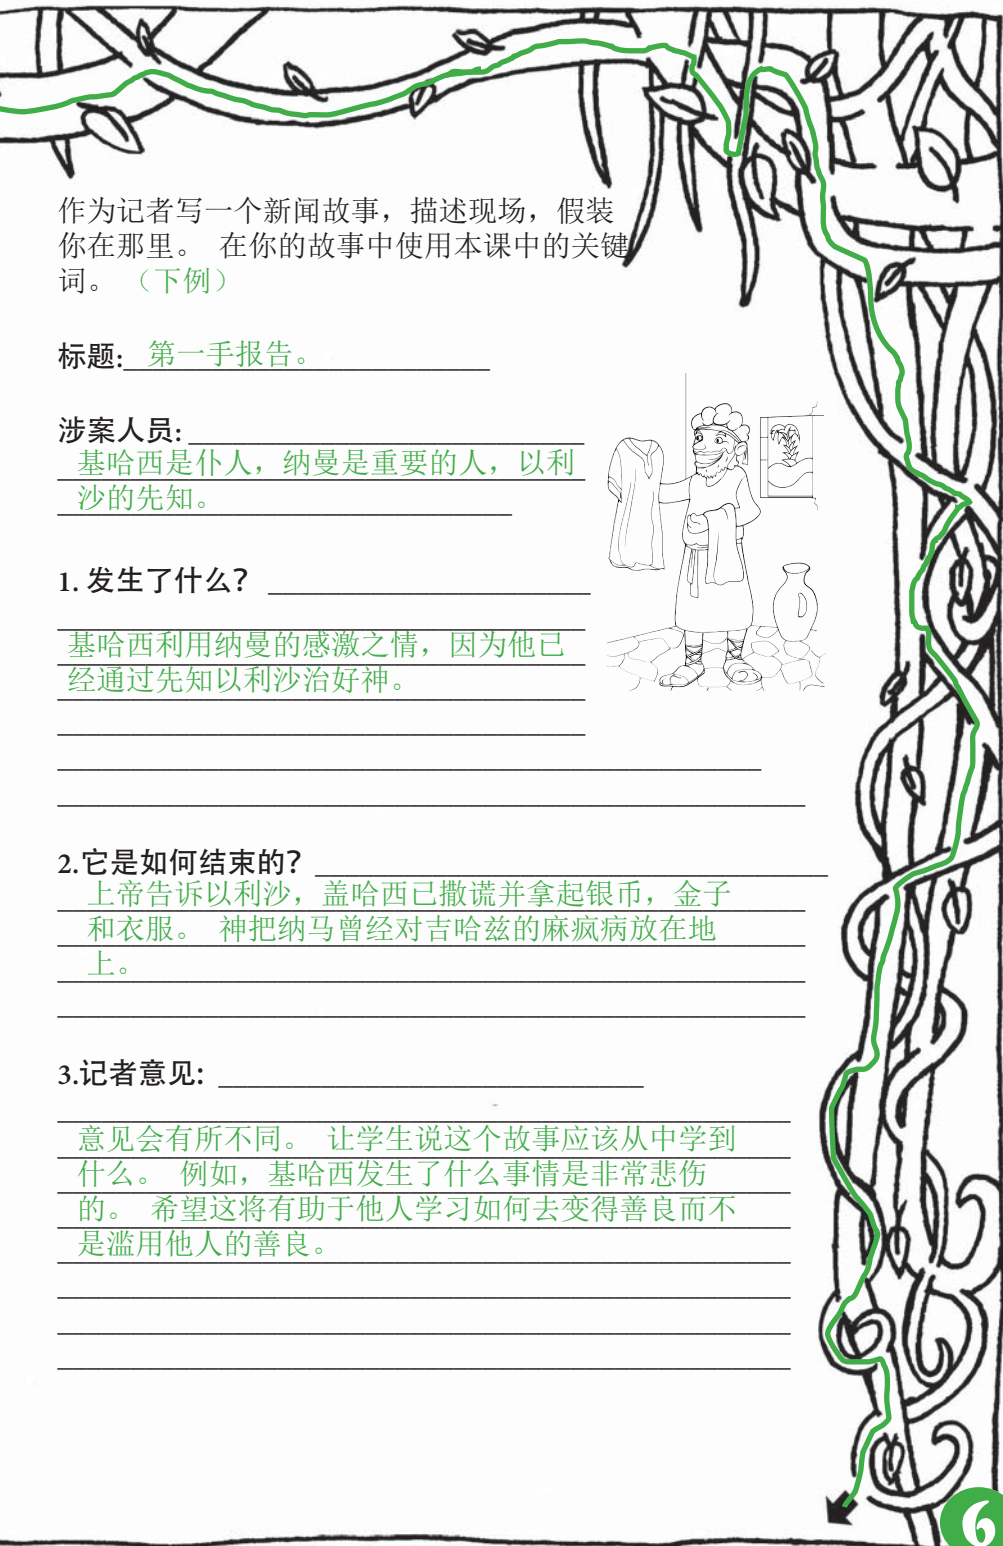 作为记者写一个新闻故事，描述现场，假装
你在那里。 在你的故事中使用本课中的关键
词。 （下例）
标题: 第一手报告。
涉案人员:
基哈西是仆人，纳曼是重要的人，以利
沙的先知。
1. 发生了什么？
基哈西利用纳曼的感激之情，因为他已
经通过先知以利沙治好神。
2.它是如何结束的？
上帝告诉以利沙，盖哈西已撒谎并拿起银币，金子
和衣服。 神把纳马曾经对吉哈兹的麻疯病放在地
上。
3.记者意见:
意见会有所不同。 让学生说这个故事应该从中学到
什么。 例如，基哈西发生了什么事情是非常悲伤
的。 希望这将有助于他人学习如何去变得善良而不
是滥用他人的善良。
6